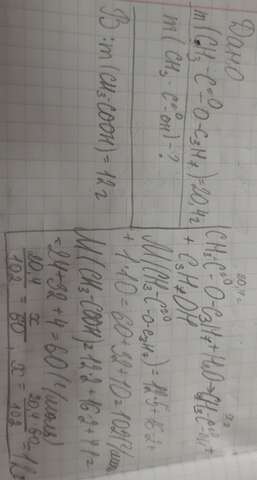 Дано
m(CH₃-C=O-O-C₃H₇)=20,4г
m(CH₃-C=O-OH)-?
В: m(CH₃COOH)=12г
20,4г xг
CH₃C=O-O-C₃H₇+H₂O→CH₃C=O-OH+
+ C₃H₇OH
M(CH₃-C=O-O-C₃H₇)=12·5+16·2+
+1·10=60+32+10=102(г/моль)
M(CH₃-COOH)=12·2+16·2+4·1=
=24+32+4=60(г/моль)
20,4/102=x/60, x=20,4·60/102=12г